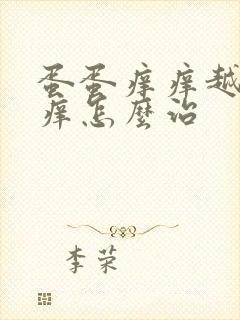 蛋蛋痒痒越
痒怎麼治
李荣